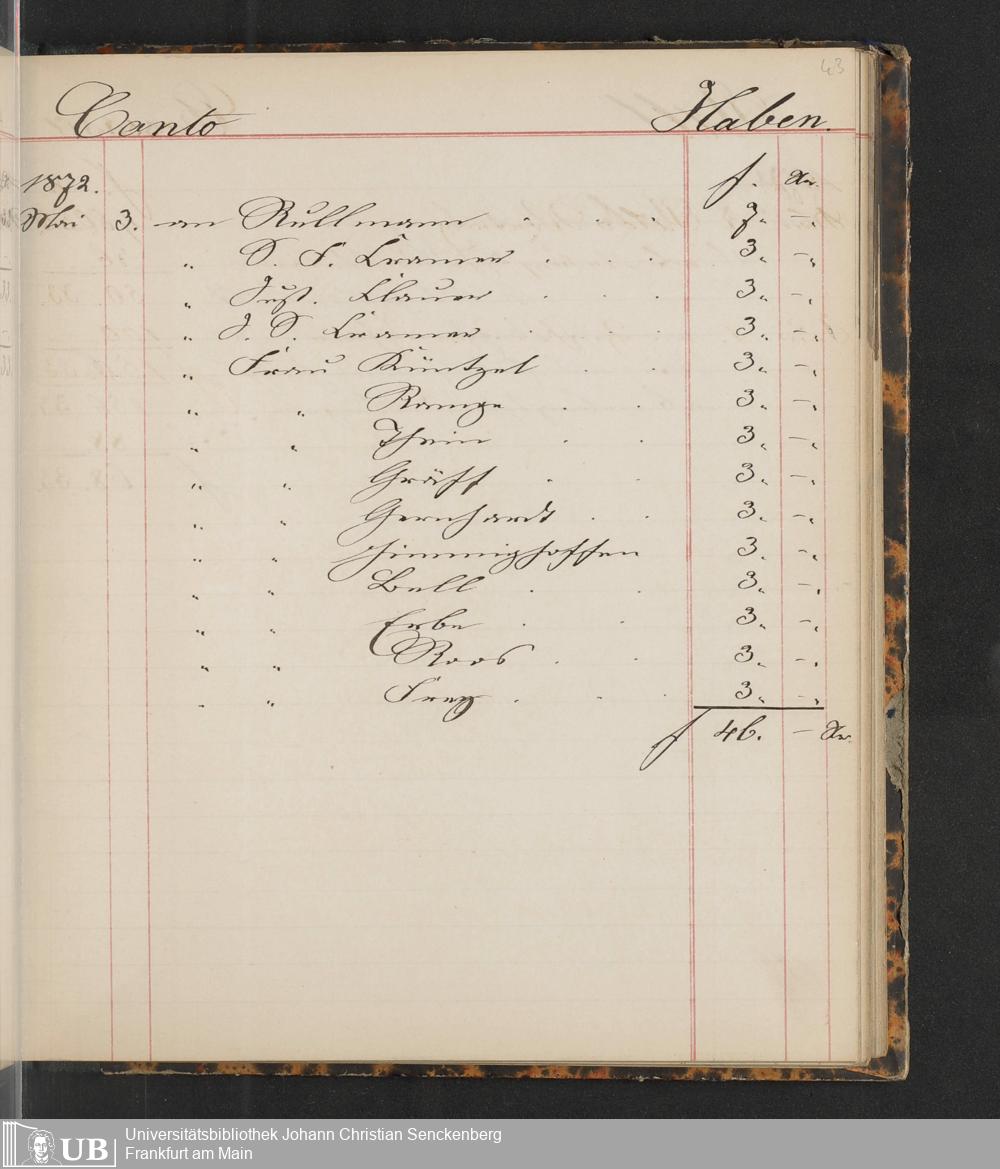 43
Canto Haben.
1872. f. Xr.
Mai 3. an Rullmann . . . 7. –.
" S. F. Cramer . . . 3. –.
" Just. Clauer . . . 3. –.
" J. S. Cramer . . . 3. –.
" Frau Küntzel . . 3. –.
" " Range . . 3. –.
" " Thein . . 3. –.
" " Gräff . . 3. –.
" " Gernhardt . . 3. –.
" " Himmighoffen 3. –.
" " Bell . . 3. –.
" " Erbe . . 3. –.
" " Roos . . 3. –.
" " Frey . . . 3. –.
f 46. – Xr.
UB Universitätsbibliothek Johann Christian Senckenberg
Frankfurt am Main